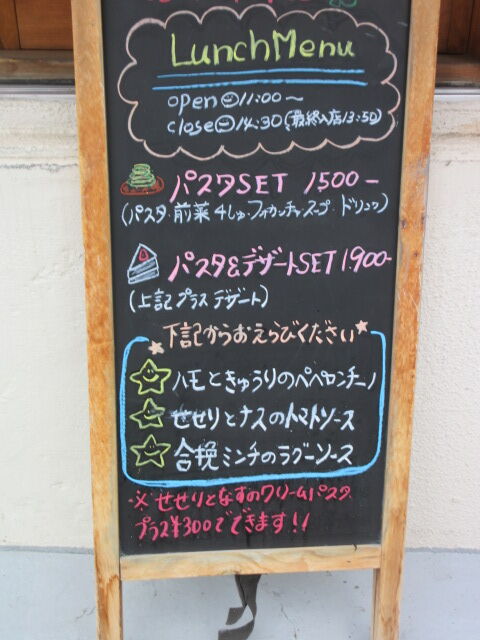 Lunch Menu
open 11:00〜
close 14:30(最終入店13:50)
パスタSET 1500-
(パスタ・前菜4しゅ・フォカッチャ・スープ・ドリンク)
パスタ&デザートSET 1.900-
(上記プラスデザート)
下記からおえらびください
ハモときゅうりのペペロンチーノ
せせりとナスのトマトソース
合挽ミンチのラグーソース
※せせりとなすのクリームパスタ
プラス¥300でできます!!